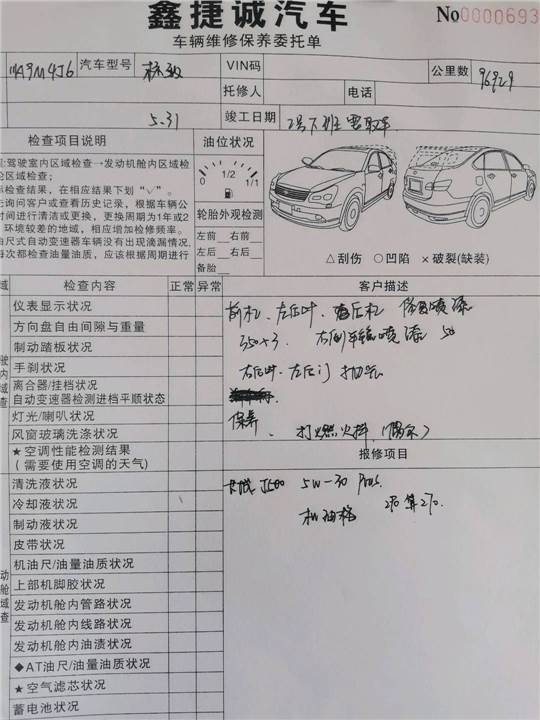 鑫捷诚汽车
No0000693
车辆维修保养委托单
MA9M4J6 汽车型号 标致 VIN码 公里数 96929
托修人 电话
5.31 竣工日期 下班需取车
检查项目说明 油位状况
驾驶室内区域检查→发动机舱内区域检
仑区域检查;
检查结果,在相应结果下划“√”。
先询问客户或查看历史记录,根据车辆公
时间进行清洁或更换,更换周期为1年或2
环境较差的地域,相应增加检修频率。
由尺式自动变速器车辆没有出现滴漏情况,
每次都检查油量油质,应该根据周期进行
0 1/2 1/1
轮胎外观检测
左前 右前
左后 右后
备胎
△刮伤 ○凹陷 ×破裂(缺装)
域 检查内容 正常 异常 客户描述
仪表显示状况
方向盘自由间隙与重量
制动踏板状况
手刹状况
离合器/挂档状况
自动变速器检测进档平顺状态
灯光/喇叭状况
风窗玻璃洗涤状况
★空调性能检测结果
(需要使用空调的天气)
驶内域查
前杠、左后叶、后杠 喷漆
350×3 右倒车镜喷漆 50
右后叶、左后门 抛光
保养 打燃火抖(偶尔)
报修项目
清洗液状况
冷却液状况
制动液状况
皮带状况
机油尺/油量油质状况
上部机脚胶状况
发动机舱内管路状况
发动机舱内线路状况
发动机舱内油渍状况
◆AT油尺/油量油质状况
★空气滤芯状况
蓄电池状况
动舱域查
J500 5W-30 Plus
机油格 270 算270